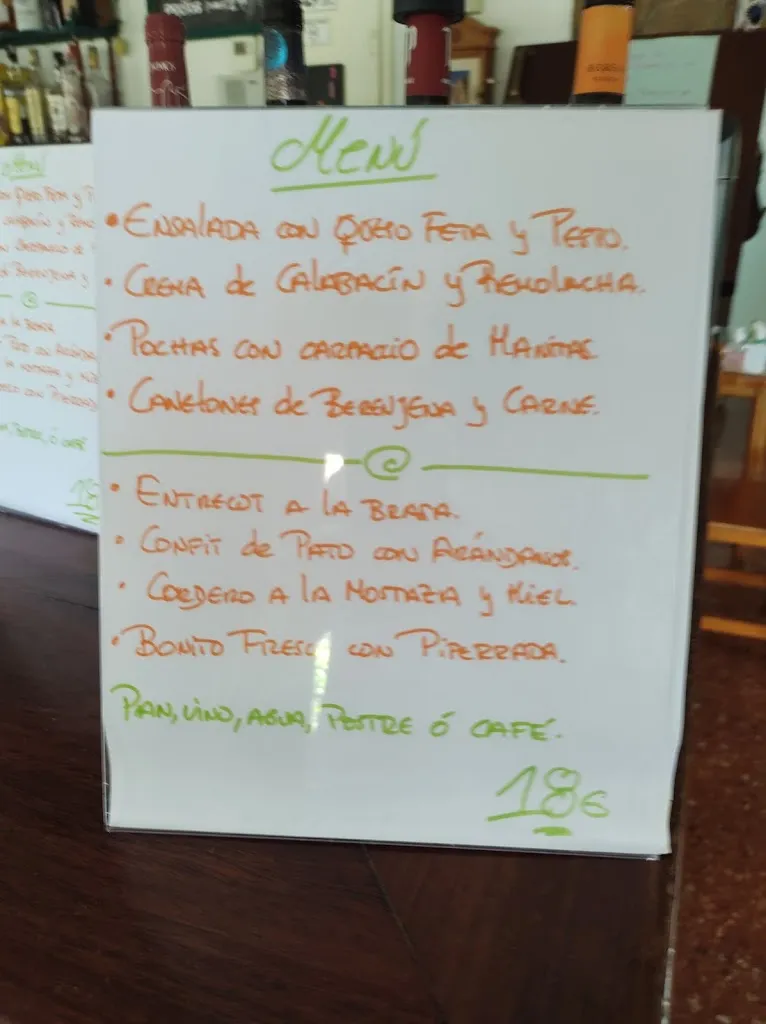 Menú
• Ensalada con Queso Feta y Pesto.
• Crema de Calabacín y Remolacha.
• Pochas con carpaccio de Manitas
• Canelones de Berenjena y Carne.
• Entrecot a la Brasa.
• Confit de Pato con Arándanos.
• Cordero a la Mostaza y Miel.
• Bonito Fresco con Piperrada.
Pan, vino, agua, Postre ó café.
18€